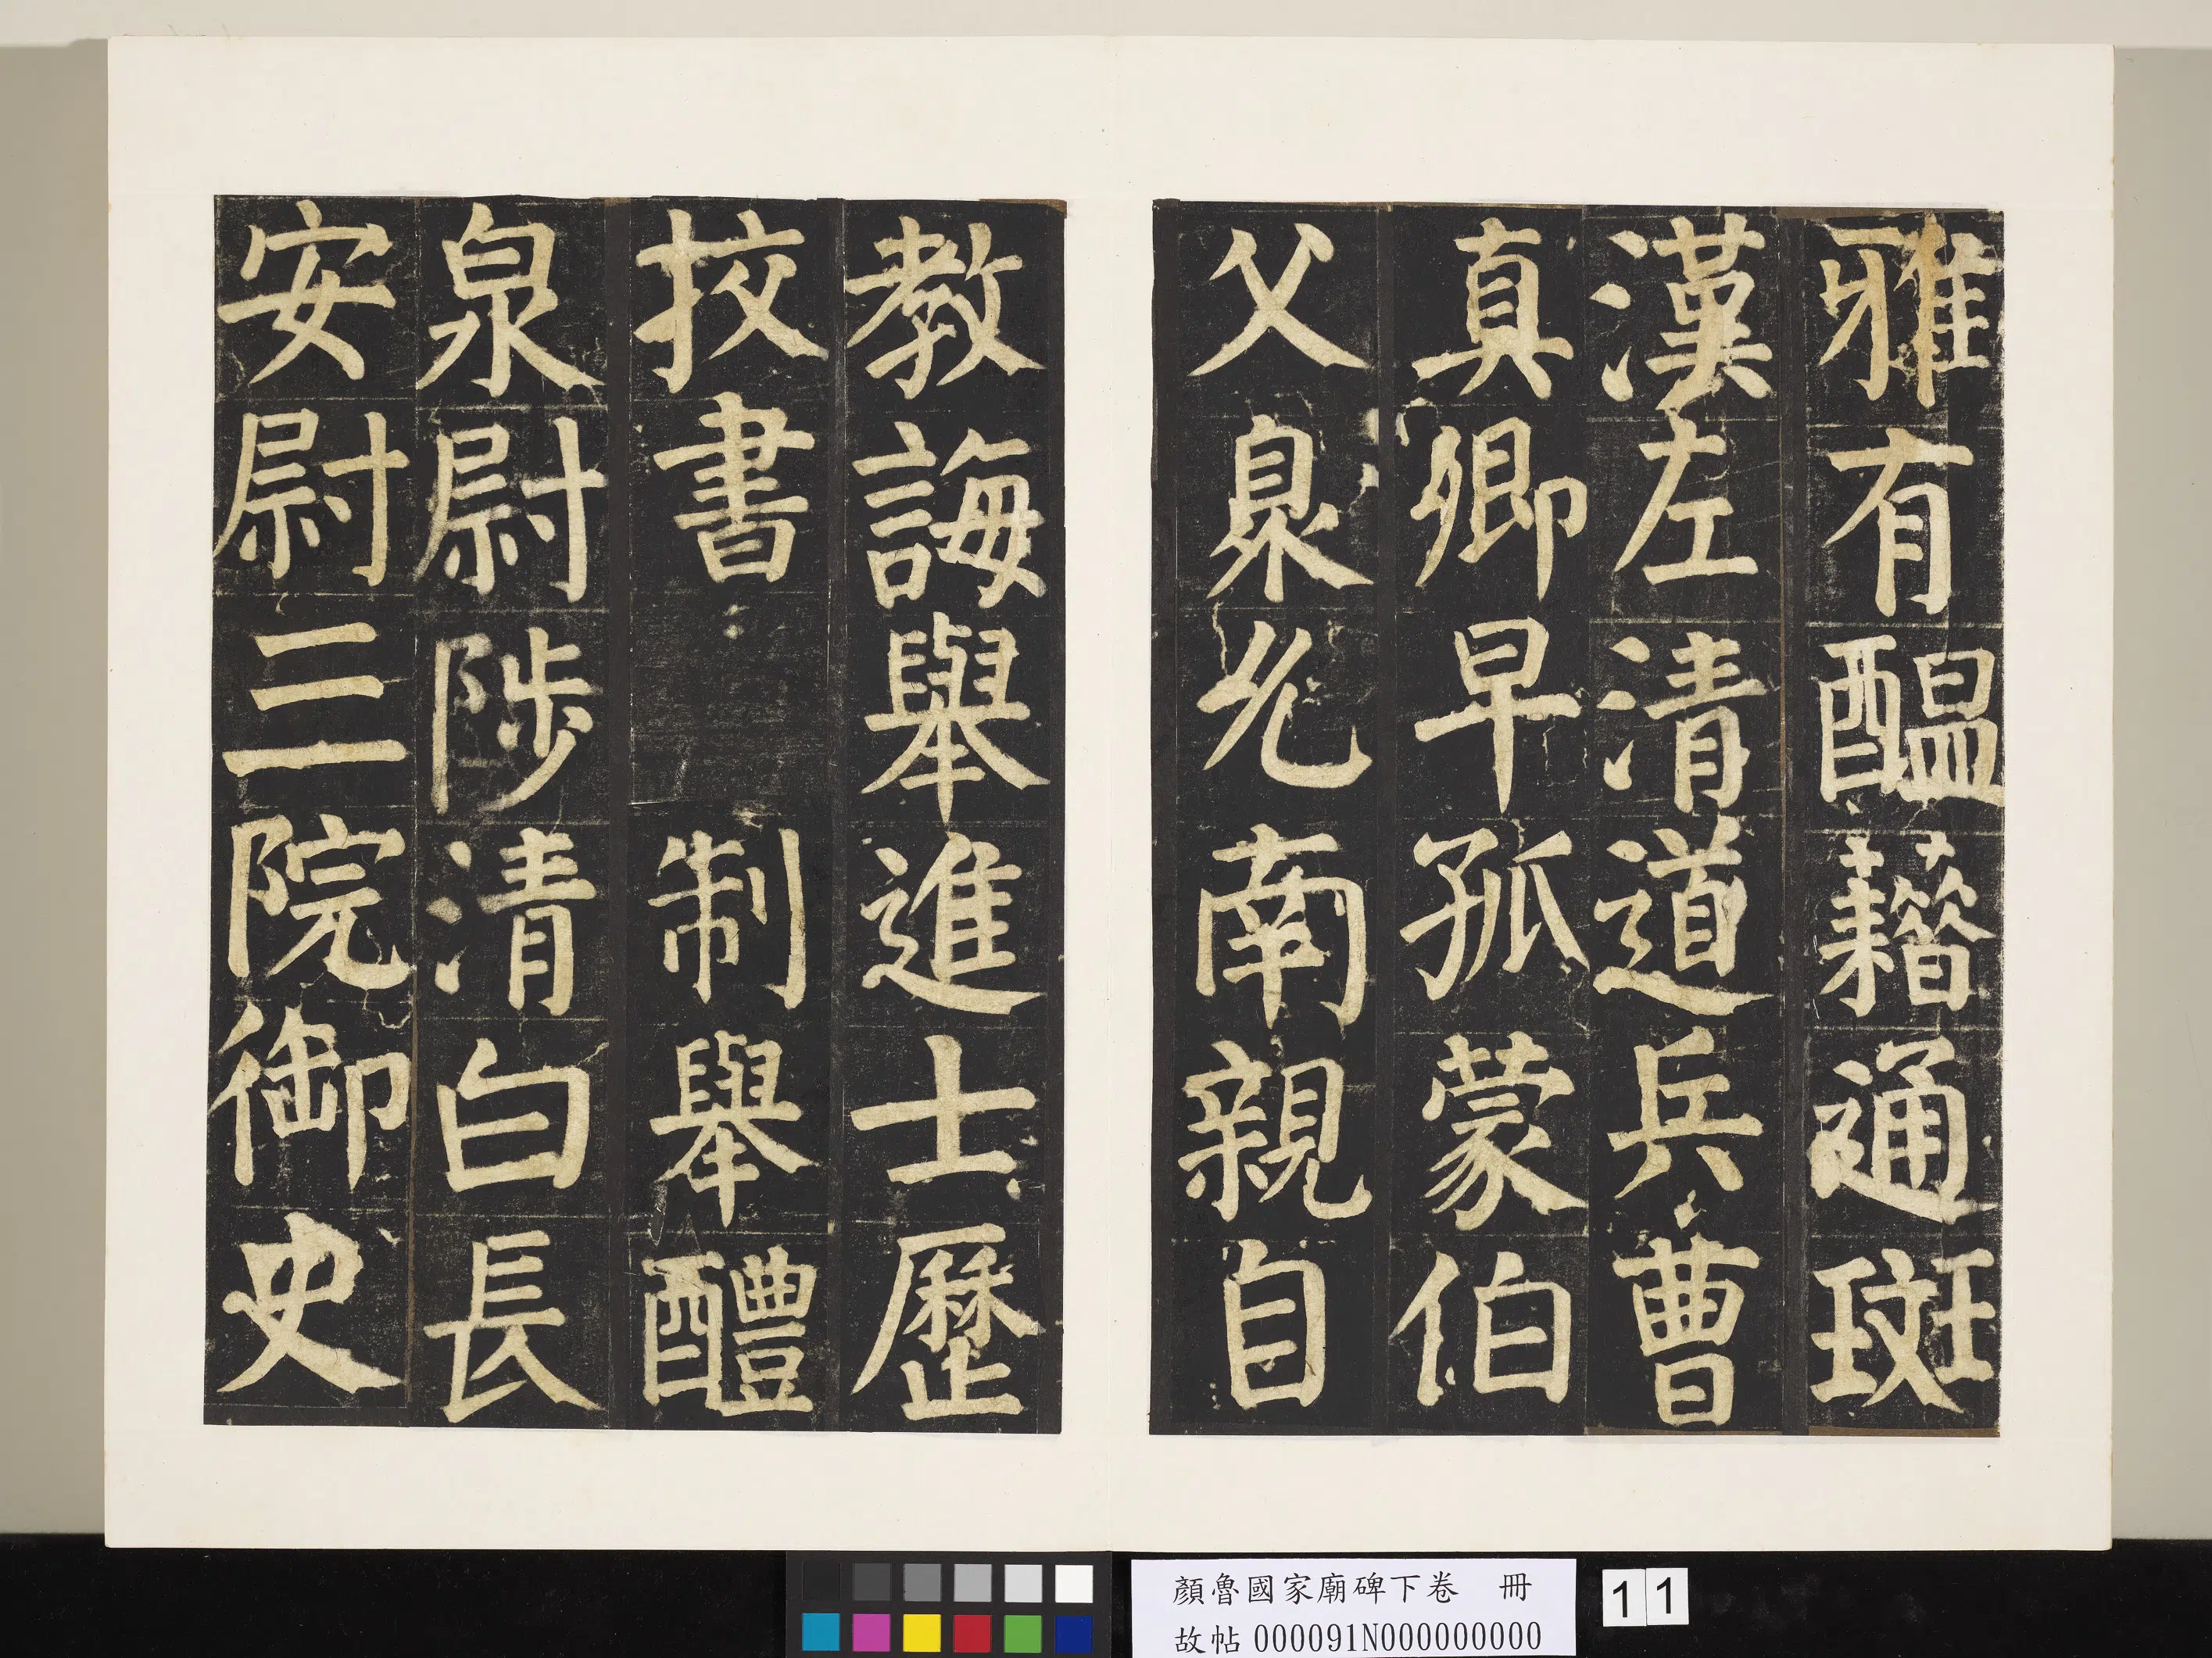 雅有醞藉通班
漢左清道兵曹
真卿早孤蒙伯
父臮允南親自
教誨舉進士歷
挍書制舉醴
泉尉陟清白長
安尉三院御史
顏魯國家廟碑下卷 冊
故帖000091N000000000
11